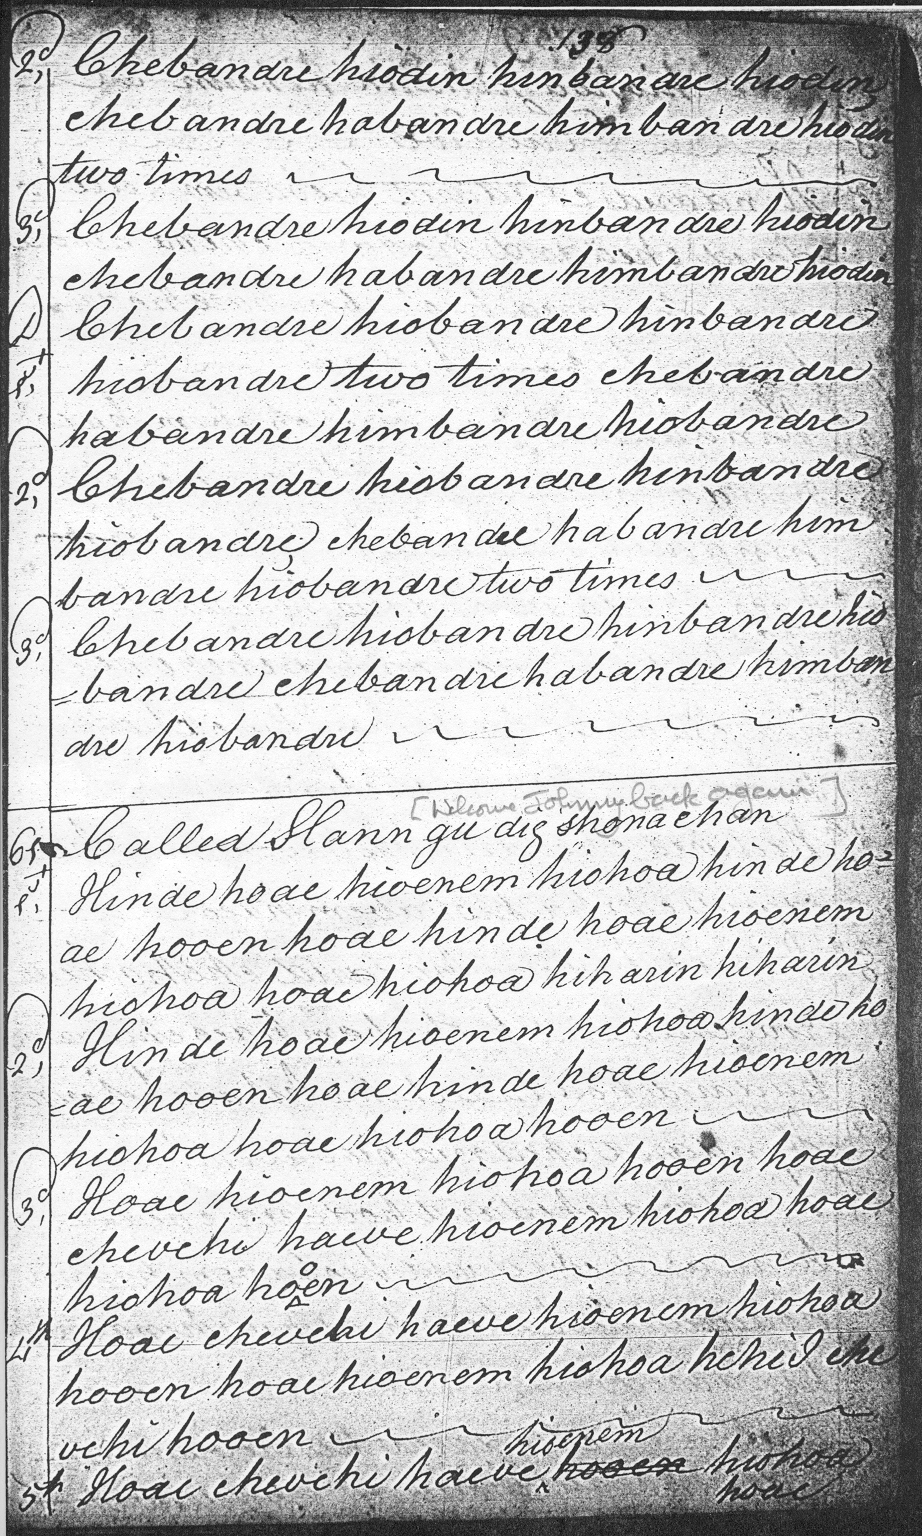 138
2d, Chebandre hiodin hinbandre hiodin
chebandre habandre himbandre hiodin
two times
3d, Chebandre hiodin hinbandre hiodin
chebandre habandre himbandre hiodin
D Chebandre hiobandre hinbandre
1st, hiobandre two times chebandre
habandre himbandre hiobandre
2d, Chebandre hiobandre hinbandre
hiobandre chebandre habandre him
bandre hiobandre two times
3d, Chebandre hiobandre hinbandre hio
=bandre chebandre habandre himban
dre hiobandre
[Welcome Johnny back again]
65 Called Slann gu dig shonachan
1st, Hinde hoae hioenem hiohoa hinde ho=
ae hooen hoae hinde hoae hioenem
hiohoa hoae hiohoa hiharin hiharin
2d, Hinde hoae hioenem hiohoa hinde ho
=ae hooen hoae hinde hoae hioenem
hiohoa hoae hiohoa hooen
3d, Hoae hioenem hiohoa hooen hoae
chevehi haeve hioenem hiohoa hoae
hiohoa hooen
4th, Hoae chevehi haeve hioenem hiohoa
hooen hoae hioenem hiohoa hehid che
vehi hooen
hioenem
5th Hoae chevehi haeve hooen hiohoa
hoae